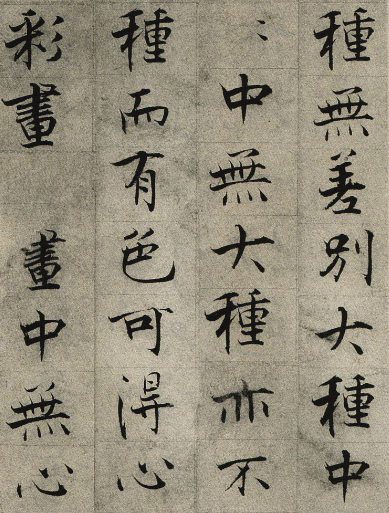 種無差別大種中
〻中無大種亦不
種而有色可淂心
彩畫　畫中無心